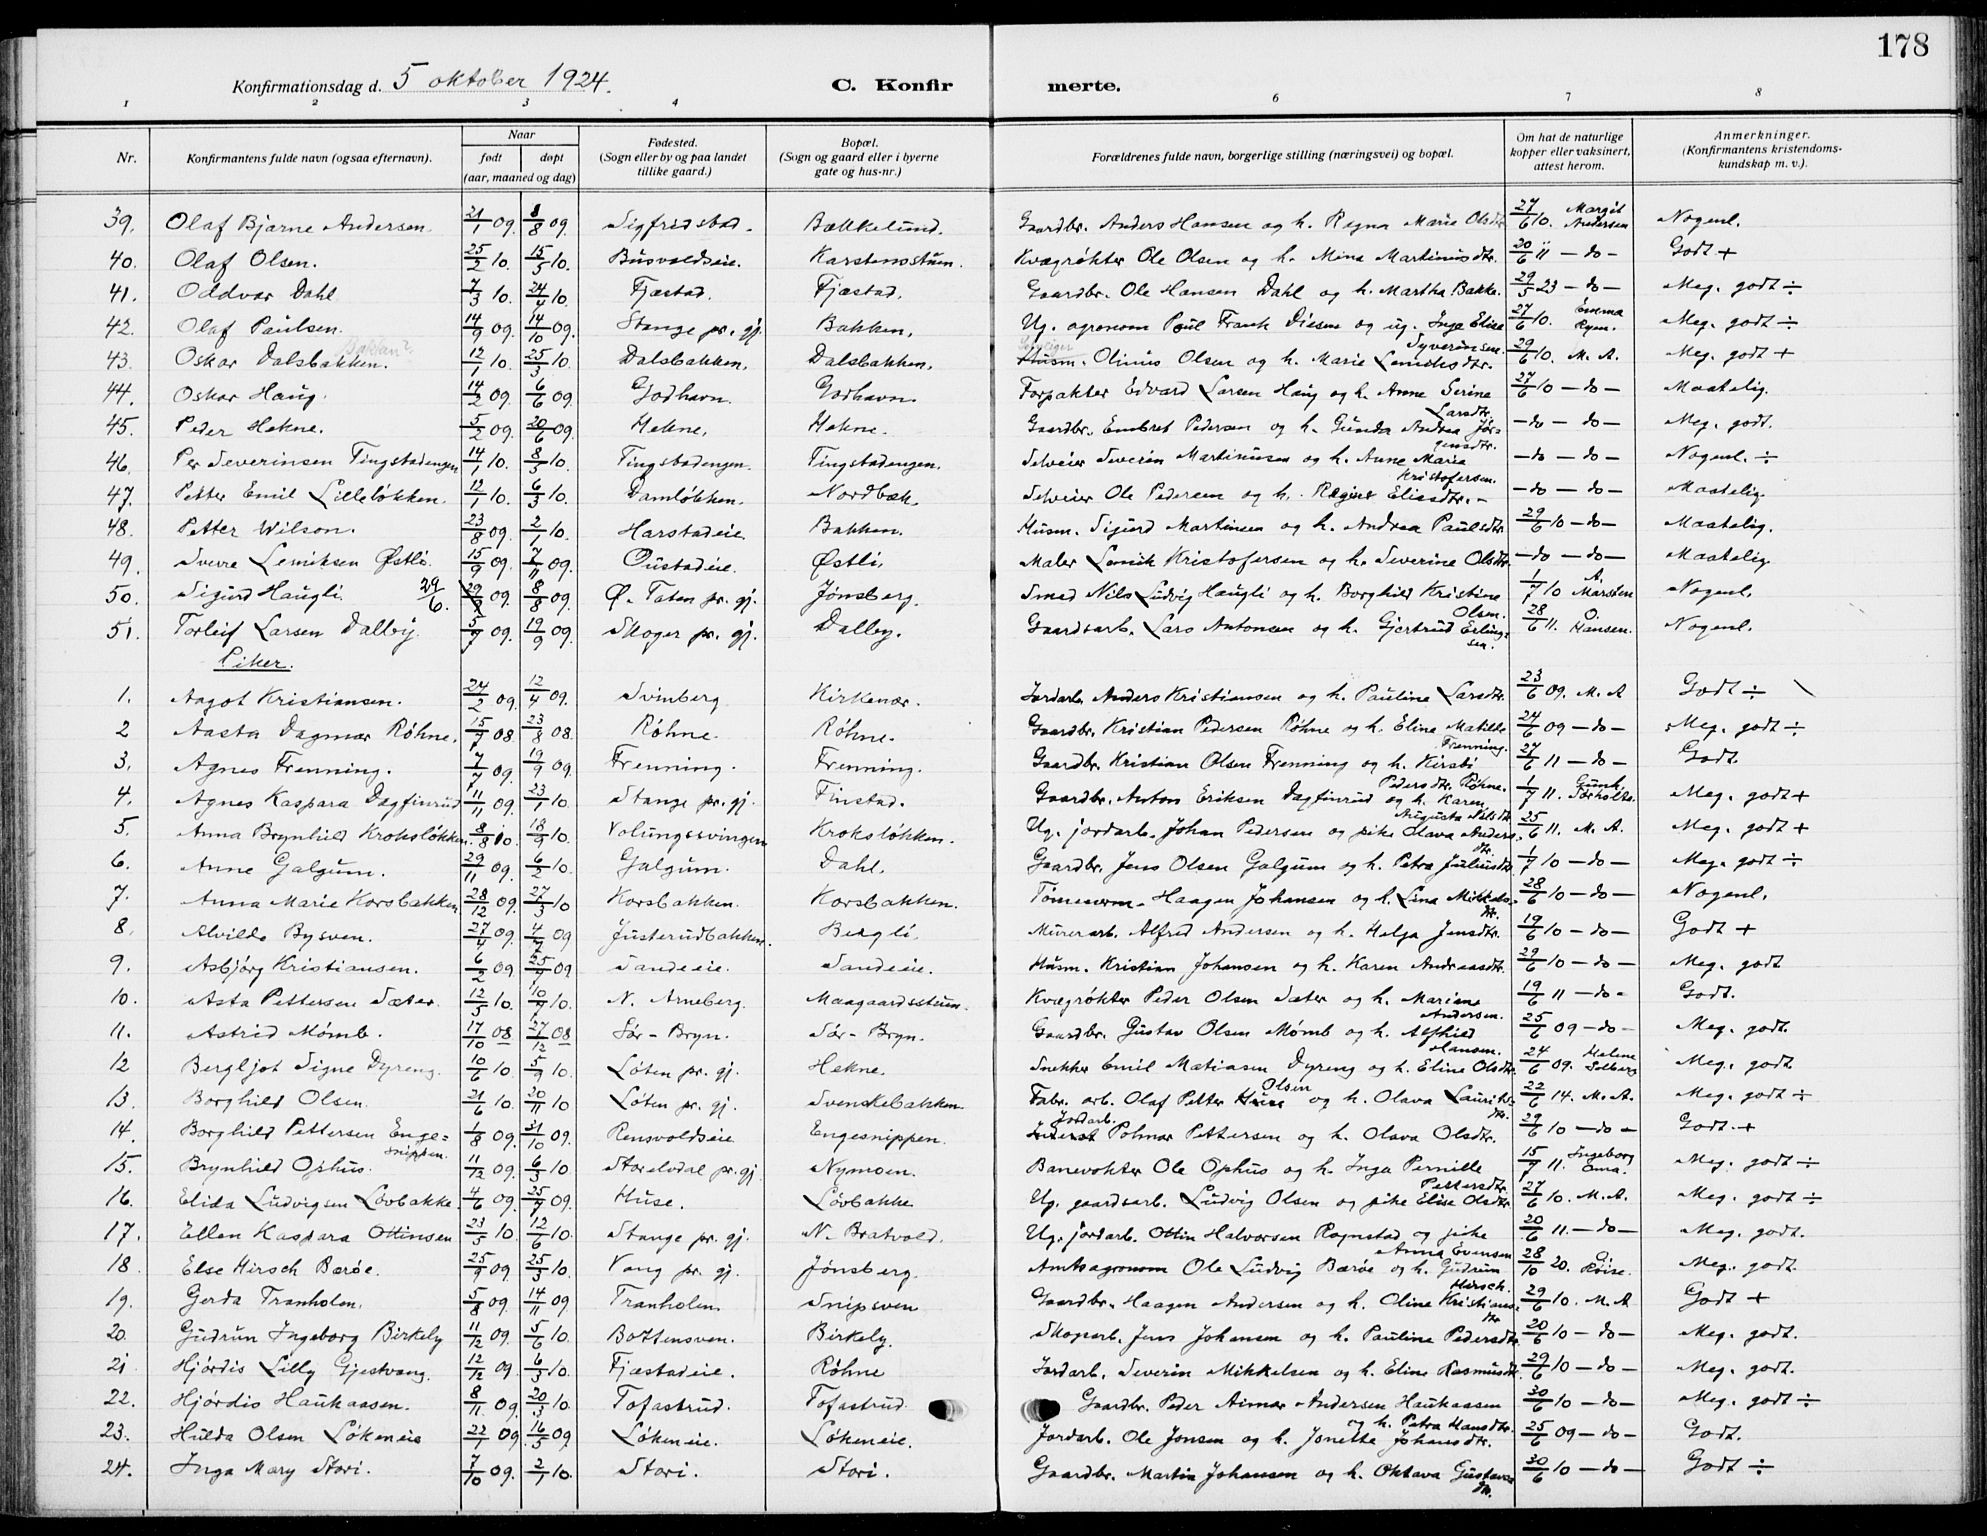 178
Konfirmationsdag d. 5 oktober 1924. C. Konfir merte.
1 2 3 4 6 7 8
Nr. Konfirmantens fulde navn (ogsaa efternavn). Naar født døpt (aar, maaned og dag) Fødested. (Sogn eller by og paa landet tillike gaard.) Bopæl. (Sogn og gaard eller i byerne gate og hus-nr.) Forældrenes fulde navn, borgerlige stilling (næringsvei) og bopæl. Om hat de naturlige kopper eller vaksinert, attest herom. Anmerkninger. (Konfirmantens kristendoms-kundskap m. v.).
39. Olaf Bjarne Andersen. 21/1 09. 8/8 09. Sigfridstad. Bækkelund. Gaardbr. Anders Hansen og h. Ragna Marie Olsdtr. 27/6 10. Margit Andersen Nogenl.
40. Olaf Olsen. 25/2 10. 15/5 10. Busvoldseie. Karstensstuen. Kvægrøkter Ole Olsen og h. Mina Martinusdtr. 20/6 11 – do – Godt +
41. Oddvar Dahl 7/3 10. 24/4 10. Fjæstad. Fjæstad. Gaardbr. Ole Hansen Dahl og h. Martha Bakke. 29/5 23 – do – Meg. godt ÷
42. Olaf Paulsen. 14/9 09. 14/10 09. Stange pr. gj. Bakken. Ug. agronom Poul Frank Diesen og ug. Inga Elisa Syverinsen. 27/6 10. Emma Rym. Meg. godt ÷
43. Oskar Dalsbakken. 12/1 10. 25/3 10. Dalsbakken. Dalsbakken. Husm. Olinus Olsen og h. Marie Lemiksdtr. 29/6 10. M. A. Meg. godt +
44. Oskar Haug. 14/2 09. 6/6 09. Godhavn. Godhavn. Forpakter Edvard Larsen Haug og h. Anne Serine Larsdtr. 27/6 10 – do – Maatelig.
45. Peder Hekne. 5/2 09. 20/6 09. Hekne. Hekne. Gaardbr. Embret Pedersen og h. Gunda Andrea Jørgensdtr. – do – do – Meg. godt.
46. Per Severinsen Tingstadengen 14/1 10. 8/5 10. Tingstadengen. Tingstadengen. Selveier Severin Martinusen og h. Anne Maria Kristofersen. – do – do – Nogenl. ÷
47. Petter Emil Lilleløkken. 12/1 10. 6/3 10. Damløkken. Nordbæk. Selveier Ole Pedersen og h. Ragine Eliasdtr. – – do – do – Maatelig.
48. Petter Wilson. 23/8 09. 2/1 10. Harstadeie Bakken. Husm. Sigurd Martinsen og h. Andrea Paulsdtr. 29/6 10 – do – Maatelig.
49. Sverre Lemiksen Østli. 15/9 09. 7/11 09. Oustadeie. Østli. Maler Lemik Kristofersen og h. Severine Olsdtr. – do – do – Maatelig.
50. Sigurd Haugli. 29/6. 09. 8/8 09. Ø. Toten pr. gj. Jønsberg. Smed Nils Ludvig Haugli og h. Borghild Kristine Olsen. 1/7 10 A. Marstein Nogenl.
51. Torleif Larsen Dalby. 5/7 09. 19/9 09. Skoger pr. gj. Dalby. Gaardsarb. Lars Antonsen og h. Gjertrud Erlingsen. 28/6 11. O. Hansen. Nogenl.
Piker.
1. Aagot Kristiansen. 24/2 09. 12/4 09. Svinberg Kirkenær. Jordarb. Anders Kristiansen og h. Pauline Larsdtr. 23/6 09. M. A Godt ÷
2 Aasta Dagmar Røhne. 15/7 08. 23/8 08. Røhne. Røhne. Gaardbr. Kristian Pedersen Røhne og h. Elina Matilde Frenning. 24/6 09 – do – Meg. godt ÷
3. Agnes Frenning. 7/7 09. 19/9 09. Frenning. Frenning. Gaardbr. Kristian Olsen Frenning og h. Kirsti Pedersdtr. Røhne. 27/6 11 – do – Godt.
4. Agnes Kaspara Dagfinrud 11/11 09. 23/1 10. Stange pr. gj. Finstad. Gaardbr. Anton Eriksen Dagfinrud og h. Karen Augusta Nilsdtr. 1/7 11. Gunh. Sørholte. Meg. godt +
5. Anna Brynhild Kroksløkken. 8/8 10. 18/9 10. Volungssvingen Kroksløkken. Ug. jordarb. Johan Pedersen og pike Olava Andersdtr. 25/6 11. M. A. Meg. godt +
6. Anne Galgum. 29/11 09. 6/2 10. Galgum. Dahl. Gaardbr. Jens Olsen Galgum og h. Petra Juliusdtr. 1/7 10 – do – Meg. godt ÷
7. Anna Marie Korsbakken 28/12 09. 27/3 10 Korsbakken. Korsbakken. Tømmerm. Haagen Johansen og h. Lina Mikkelsdtr. 28/6 10 – do – Nogenl.
8. Alvilde Bysven. 27/4 09. 4/7 09 Justerudbakken. Bergli. Murerarb. Alfred Andersen og h. Helga Jensdtr. 19/6 10 – do – Godt +
9. Asbjørg Kristiansen. 6/2 09. 25/4 09 Sandeeie. Sandeeie. Husm. Kristian Johansen og h. Karen Andreasdtr. 29/6 10 – do – Meg. godt
10. Asta Pettersen Sæter. 12/5 10. 10/7 10. N. Arneberg. Maagaardsstuen. Kvægrøkter Peder Olsen Sæter og h. Mariane Andersen. 19/6 11 – do – Godt.
11. Astrid Mømb. 17/10 08 27/12 08 Sør-Bryn. Sør-Bryn. Gaardbr. Gustav Olsen Mømb og h. Alfhild Hansen. 25/6 09 – do – Meg. godt.
12 Bergljot Signe Dyreng. 10/6 10. 5/9 10. Løten pr. gj. Hekne. Snekker Emil Matiasen Dyreng og h. Eline Olsdtr. 24/6 09. Helene Solberg Meg. godt
13. Borghild Olsen. 21/6 10. 20/11 10 Løten pr. gj. Svenskebakken. Fabr. arb. Olaf Petter Huse Olsen og h. Olava Lauritsdtr. 22/6 14. M. A. Meg. godt ÷
14. Borghild Pettersen Engesnippen. 1/8 09. 31/10 09. Rensvoldseie Engesnippen. Jordarb. Polmar Pettersen og h. Olava Olsdtr. 29/6 10 – do – Godt. +
15. Brynhild Ophus. 11/12 09. 6/3 10. Storelvdal pr. gj. Nymoen. Banevokter Ole Ophus og h. Inga Pernille Pettersdtr. 15/7 11. Ingeborg Meg. godt ÷
16. Elida Ludvigsen Løvbakke. 4/6 09. 25/7 09. Huse. Løvbakke Ug. gaardsarb. Ludvig Olsen og pike Elise Olsdtr. 27/6 10. M. A. Meg. godt ÷
17. Ellen Kaspara Ottinsen 23/5 10. 12/6 10. Stange pr. gj. N. Bratvold. Ug. jordarb. Ottin Halvorsen Rognstad og pike Anna Evensen 20/6 11. – do – Meg. godt.
18. Else Hirsch Barøe. 25/9 09. 25/3 10. Vang pr. gj. Jønsberg. Amtsagronom Ole Ludvig Barøe og h. Gudrun Hirsch. 28/10 20. Meg. godt.
19. Gerda Tranholen. 5/8 09. 14/11 09 Tranholen. Snipsven Gaardbr. Haagen Andersen og h. Oline Kristiansdtr 29/6 10. M. A Godt +
20. Gudrun Ingeborg Birkely 11/12 09. 5/6 10. Bottensven. Birkely. Skogarb. Jens Johansen og h. Pauline Pedersdtr. 20/6 10 – do – Meg. godt.
21 Hjørdis Lilly Gjestvang. 12/12 09 6/3 10. Fjæstadeie. Røhne Jordarb. Severin Mikkelsen og h. Eline Rasmusdtr. 29/6 10 – do – Meg. godt.
22. Hjørdis Haukaasen. 8/11 09. 20/3 10. Tofastrud. Tofastrud. Gaardbr. Peder Aimar Andersen Haukaasen og h. Petra Hansdtr. 30/6 10 – do – Meg. godt ÷
23. Hulda Olsen Løkeneie 22/1 09. 16/5 09. Løkeneie. Løkeneie. Jordarb. Ole Jonsen og h. Jonette Johansdtr. 25/6 09 – do – Godt.
24. Inga Mary Stori. 7/10 09. 2/1 10. Stori. Stori. Gaardbr. Martin Johansen og h. Oktava Gustavsdtr. 30/6 10 – do – Godt ÷